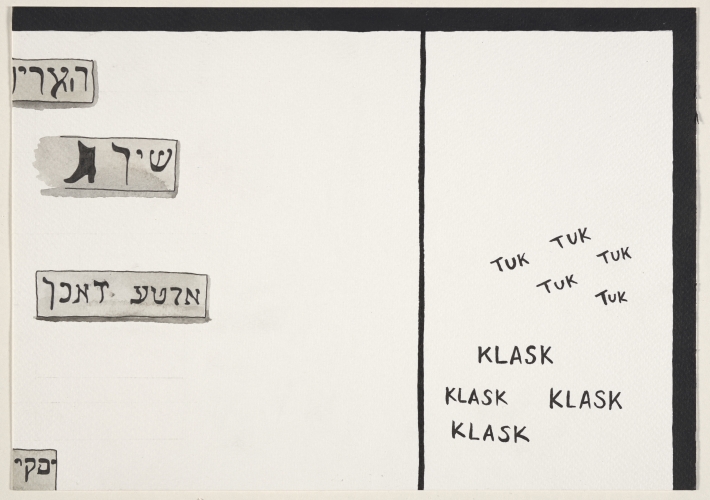 שיך
אלטע זאכן
TUK TUK TUK
TUK TUK
KLASK
KLASK KLASK
KLASK